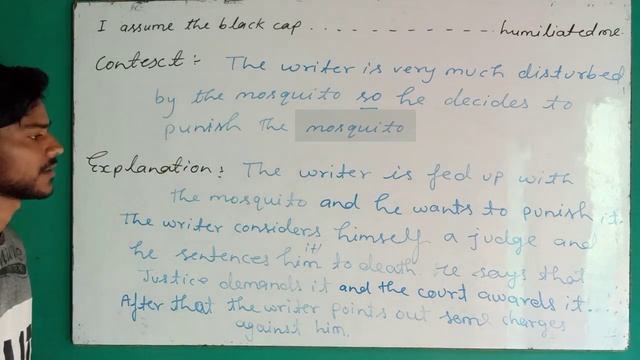 I assume the black cap ............ humiliated me.
Context :- The writer is very much disturbed
by the mosquito so he decides to
punish the mosquito
Explanation : The writer is fed up with
the mosquito and he wants to punish it.
The writer considers himself a judge and
he sentences him 'it' to death. He says that
Justice demands it and the court awards it...
After that the writer points out some charges
against him.